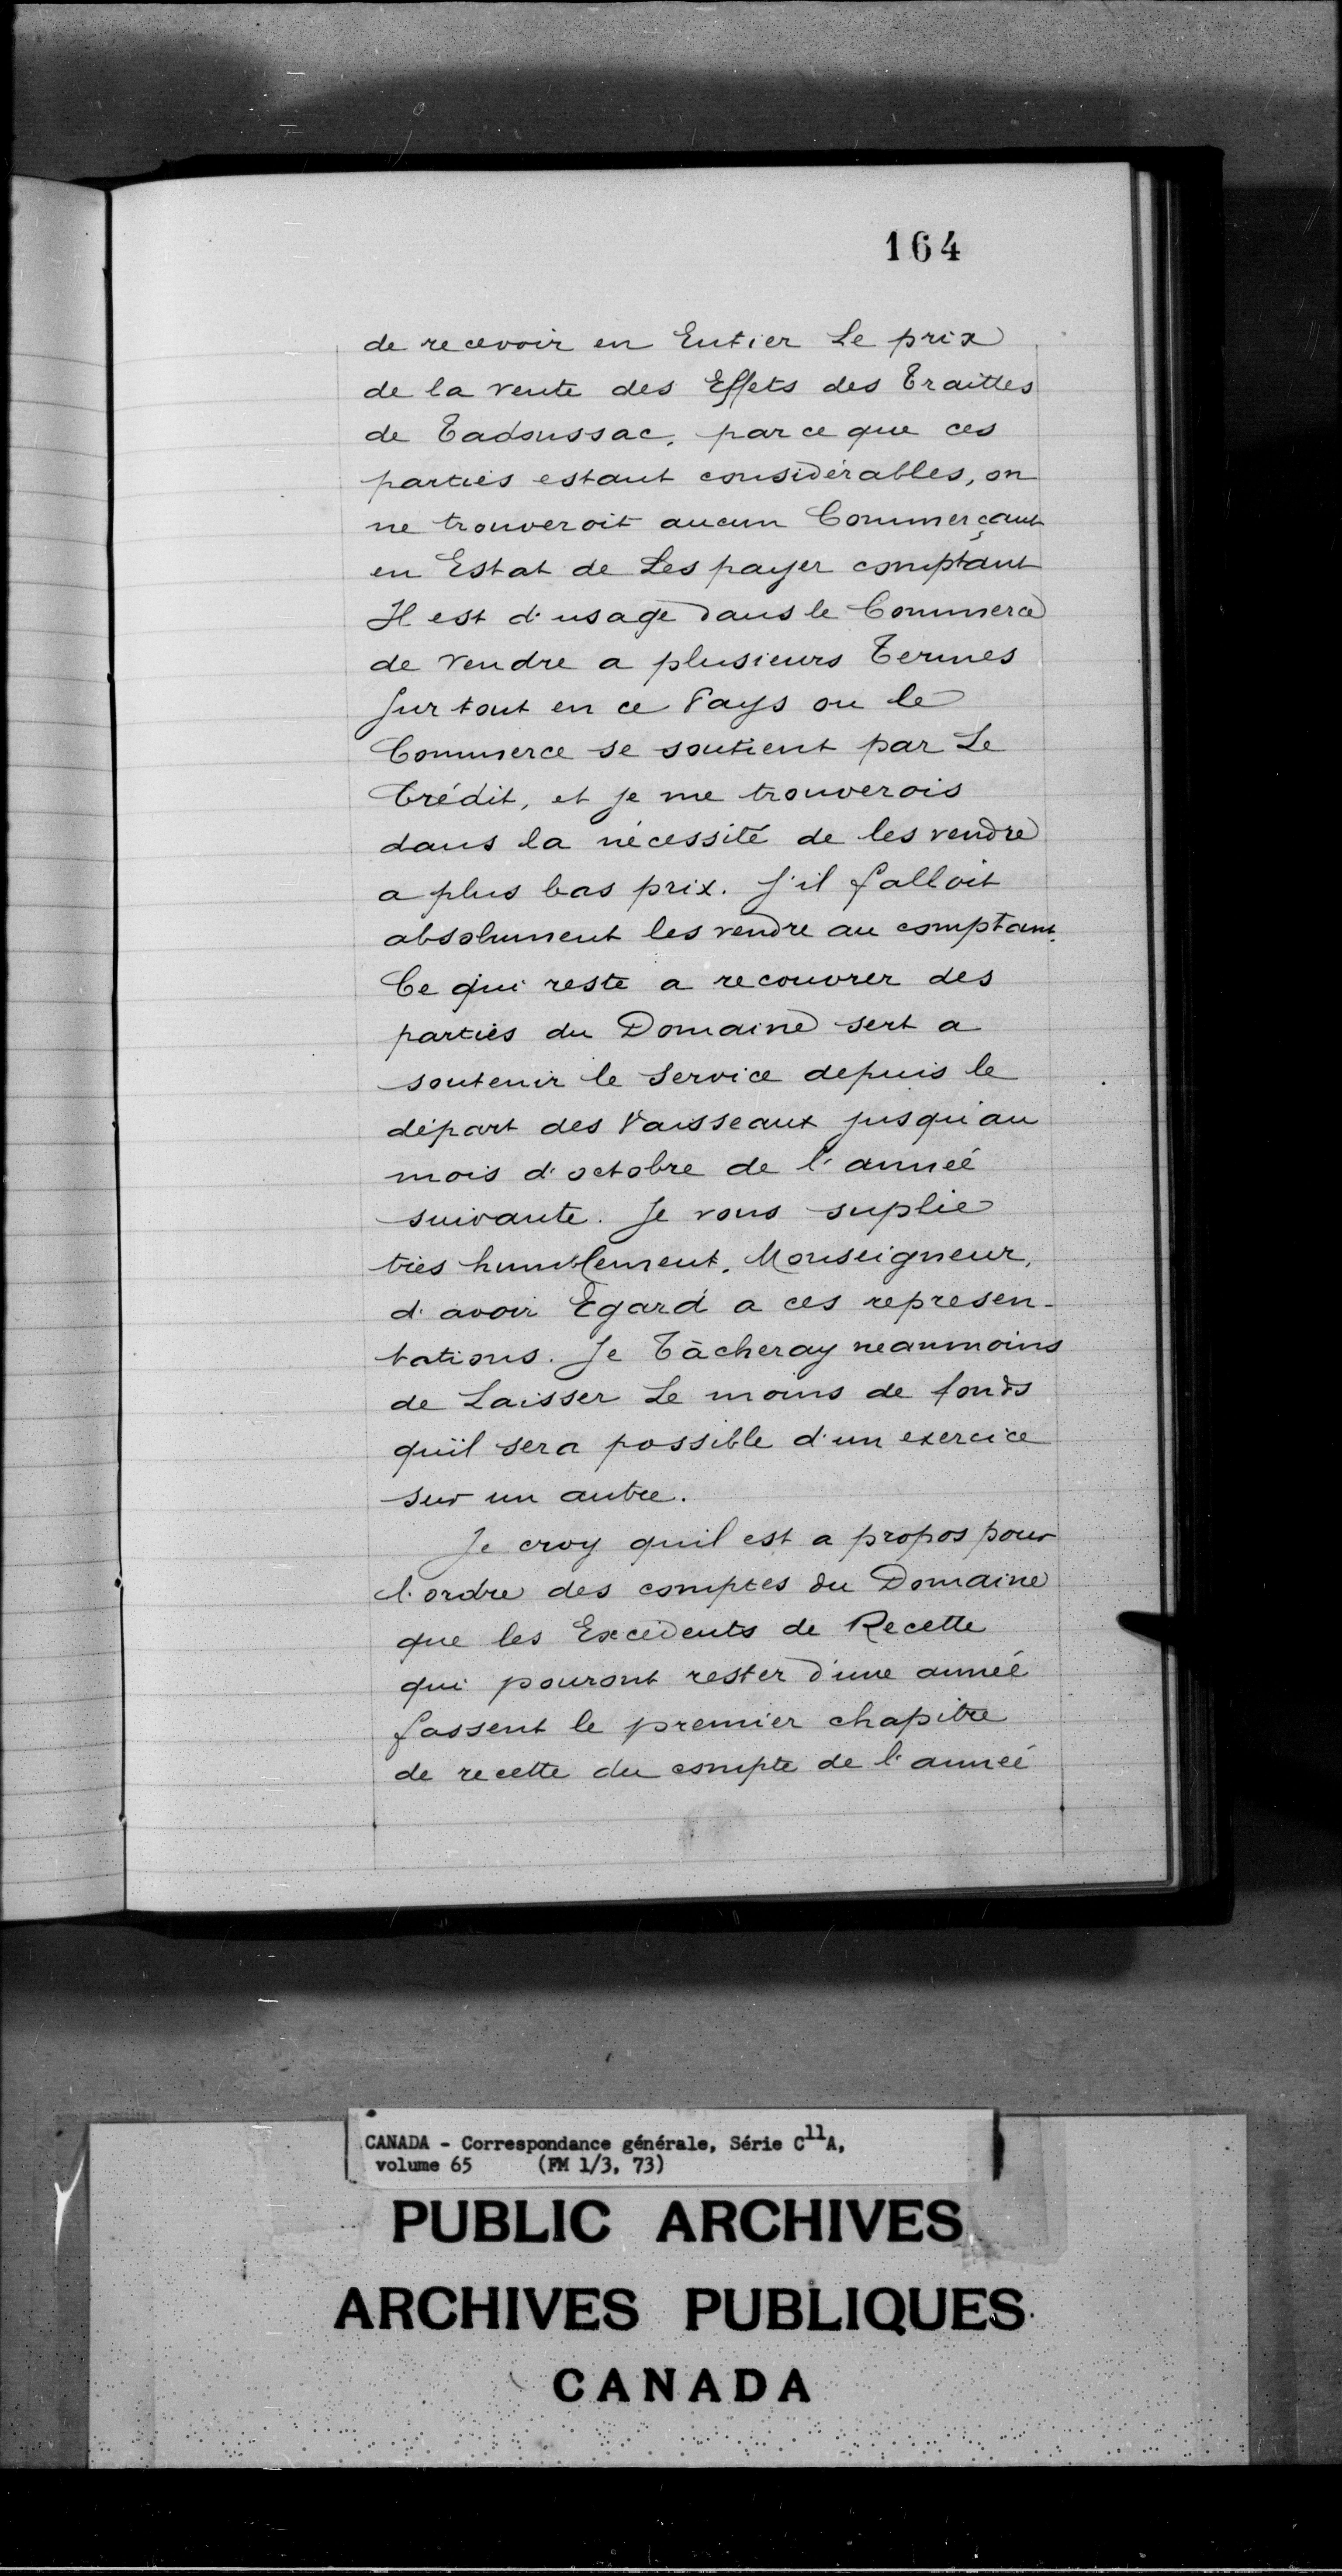 164
de recevoir en Entier Le prix
de la vente des Effets des Traittes
de Tadoussac, parce que ces
parties estant considérables, on
ne trouveroit aucun Commerçant
en Estat de Les payer comptant
Il est d'usage dans le Commerce
de vendre a plusieurs Termes
surtout en ce Pays ou le
Commerce se soutient par Le
Crédit, et je me trouverois
dans la nécessité de les vendre
a plus bas prix. S'il falloit
absolument les vendre au comptant.
Ce qui reste a recouvrer des
parties du Domaine sert a
soutenir le Service depuis le
départ des Vaisseaux jusqu'au
mois d'octobre de l'année
suivante. Je vous suplie
très humblement, Monseigneur,
d'avoir Egard a ces represen-
tations. Je Tâcheray neanmoins
de Laisser Le moins de fonds
qu'il sera possible d'un exercice
sur un autre.
Je croy quil est a propos pour
l'ordre des comptes du Domaine
que les Excédents de Recette
qui pouront rester d'une année
fassent le premier chapitre
de recette du compte de l'année
CANADA - Correspondance générale, Série C11A,
volume 65 (FM 1/3, 73)
PUBLIC ARCHIVES
ARCHIVES PUBLIQUES
CANADA